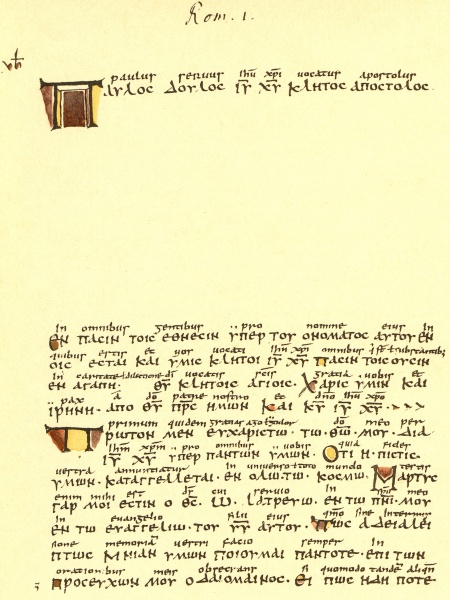 Rom. 1.
paulus seruus ihū xp̄i uocatus apostolus
ΠΑΥΛΟC ΔΟΥΛΟC ΙῩ ΧῩ ΚΛΗΤΟC ΑΠΟCΤΟΛΟC
In omnibus gentibus pro nomine eius In
ΕΝ ΠΑCΙΝ ΤΟΙC ΕΘΝΕCΙΝ ΥΠΕΡ ΤΟΥ ΟΝΟΜΑΤΟC ΑΥΤΟΥ ΕΝ
quibus estis et uos uocati ihū xp̄i omnibus
ΟΙC ΕCΤΑΙ ΚΑΙ ΥΜΙC ΚΛΗΤΟΙ ΙῩ ΧῩ ΠΑCΙΝ ΤΟΙC ΟΥCΙΝ
In caritate dilectione dī uocatis scis gratia uobis et
ΕΝ ΑΓΑΠΗ· ΘῩ ΚΛΗΤΟΙC ΑΓΙΟΙC· ΧΑΡΙC ΥΜΙΝ ΚΑΙ
pax a dō patre nostro et dn̄o ihū xp̄o
ΙΡΗΝΗ· ΑΠΟ ΘῩ ΠΡ̄C ΗΜΩΝ ΚΑΙ ΚῩ ΙῩ ΧῩ·
primum quidem gratias ago dō meo per
ΠΡΩΤΟΝ ΜΕΝ ΕΥΧΑΡΙCΤΩ· ΤΩ· ΘΩ̄· ΜΟΥ· ΔΙΑ
ihm̄ xp̄m pro omnibus uobis quia fides
ΙῩ ΧῩ ΥΠΕΡ ΠΑΝΤΩΝ ΥΜΩΝ· ΟΤΙ Η· ΠΙCΤΙC·
uestra adnuntiatur in uniuerso toto mundo testis
ΥΜΩΝ· ΚΑΤΑΓΓΕΛΛΕΤΑΙ· ΕΝ ΟΛΩ· ΤΩ· ΚΟCΜΩ· ΜΑΡΤΥC
enim mihi est dś cui seruio in spū meo
ΓΑΡ ΜΟΙ ΕCΤΙΝ Ο ΘC̄· Ω· ΛΑΤΡΕΥΩ· ΕΝ ΤΩ ΠΝῙ· ΜΟΥ
In euangelio filii eius sine Intermis
ΕΝ ΤΩ ΕΥΑΓΓΕΛΙΩ· ΤΟΥ ΥῩ ΑΥΤΟΥ· ΠΩC ΑΔΕΙΑΛΕΙ
sione memoriā uestri facio semper In
ΠΤΩC ΜΝΙΑΝ ΥΜΩΝ ΠΟΙΟΥΜΑΙ ΠΑΝΤΟΤΕ· ΕΠΙ ΤΩΝ
orationibus meis obsecrans si quomodo tandē
ΠΡΟCΕΥΧΩΝ ΜΟΥ Ο ΔΑΙΟΜΑΙΝΟC· ΕΙ ΠΩC ΗΔΗ ΠΟΤΕ